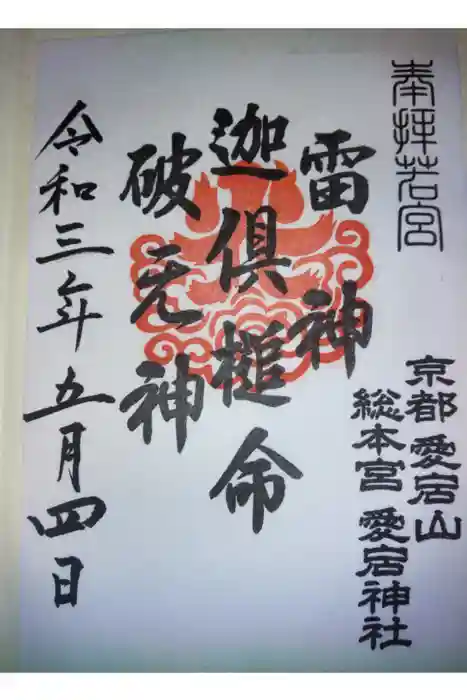 奉拝若宮
京都愛宕山
総本宮 愛宕神社
雷神
迦倶槌命
破无神
令和三年五月四日